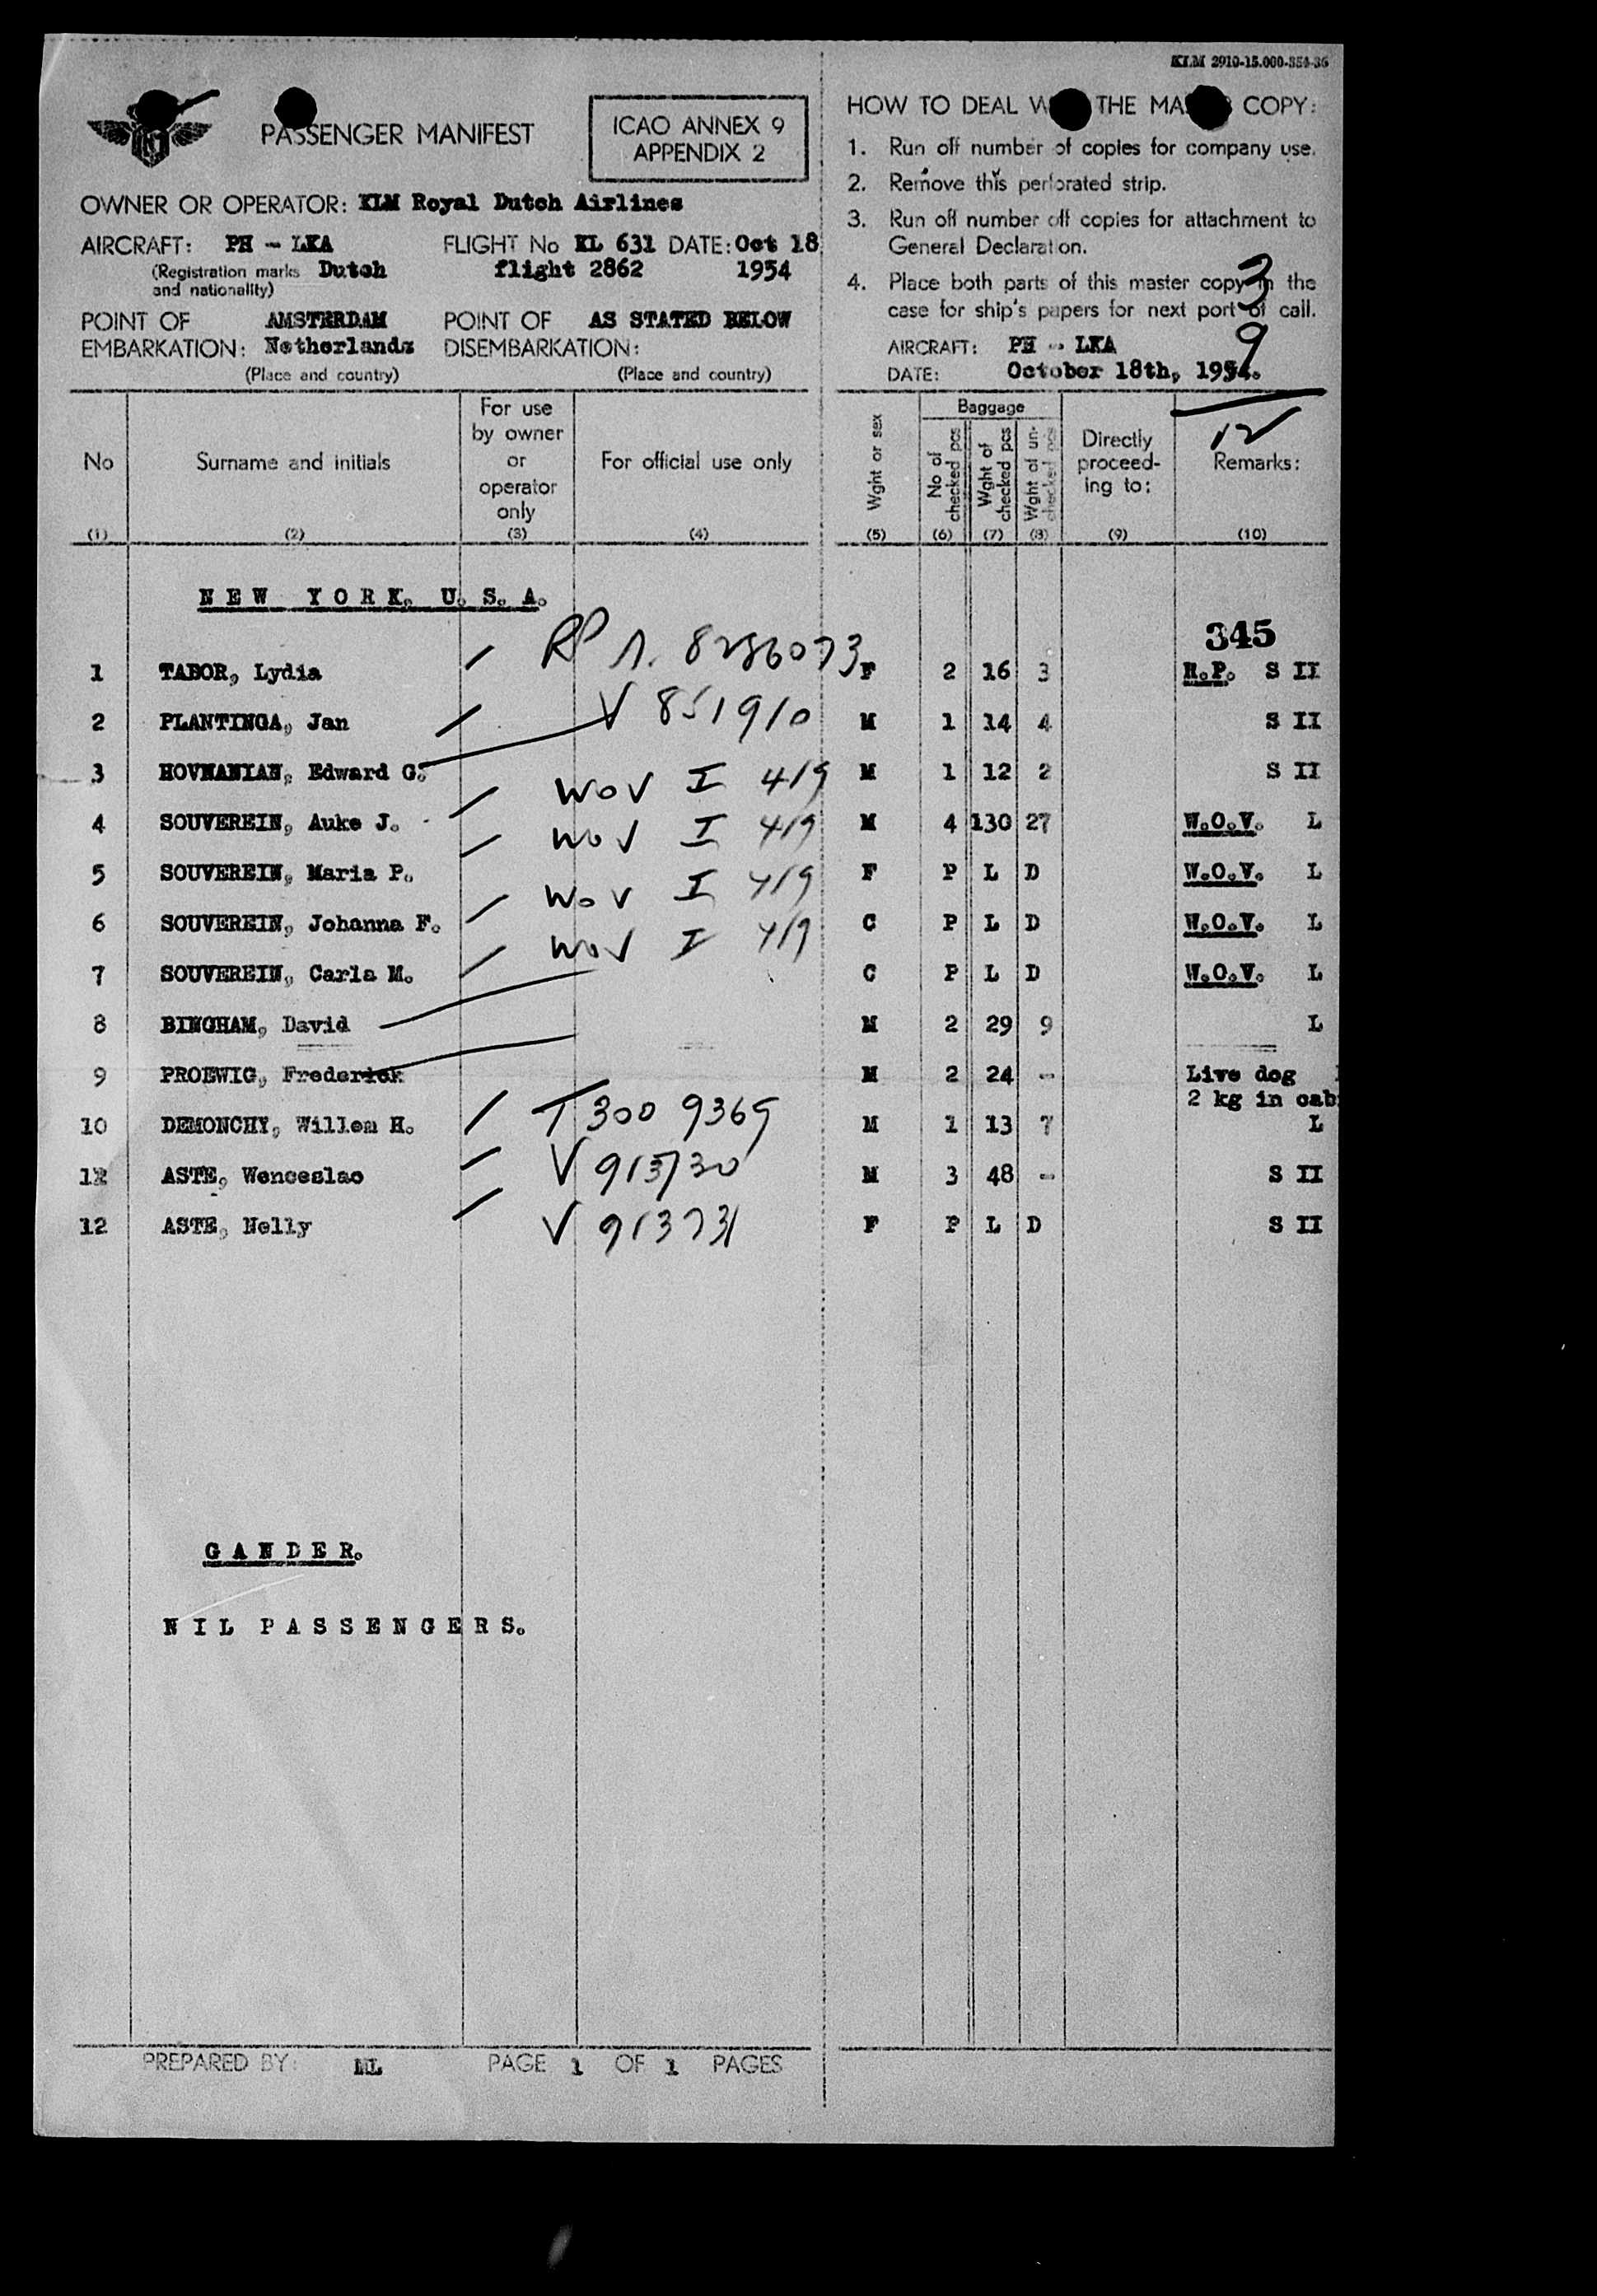 KLM 2910-15.000-354-36
PASSENGER MANIFEST
ICAO ANNEX 9
APPENDIX 2
OWNER OR OPERATOR: KLM Royal Dutch Airlines
AIRCRAFT: PH - LKA FLIGHT No KL 631 DATE: Oct 18
(Registration marks and nationality) Dutch flight 2862 1954
POINT OF EMBARKATION: AMSTERDAM Netherlands POINT OF DISEMBARKATION: AS STATED BELOW
(Place and country) (Place and country)
HOW TO DEAL W THE MA COPY:
1. Run off number of copies for company use.
2. Remove this perforated strip.
3. Run off number off copies for attachment to
General Declaration.
4. Place both parts of this master copy in the
case for ship's papers for next port of call.
AIRCRAFT: PH - LKA
DATE: October 18th, 1954.
3
9
12
No Surname and initials For use by owner or operator only For official use only Wght or sex Baggage No of checked pcs Wght of checked pcs Wght of unchecked pcs Directly proceeding to: Remarks:
(1) (2) (3) (4) (5) (6) (7) (8) (9) (10)
NEW YORK. U. S. A.
345
1 TABOR, Lydia / RP A. 8286073 F 2 16 3 R.P. S II
2 PLANTINGA, Jan / V 851910 M 1 14 4 S II
3 HOVNANIAN, Edward G. M 1 12 2 S II
4 SOUVEREIN, Auke J. / WOV I 419 M 4 130 27 W.O.V. L
5 SOUVEREIN, Maria P. / WOV I 419 F P L D W.O.V. L
6 SOUVEREIN, Johanna F. / WOV I 419 C P L D W.O.V. L
7 SOUVEREIN, Carla M. / WOV I 419 C P L D W.O.V. L
8 BINGHAM, David M 2 29 9 L
9 PROEWIG, Frederick M 2 24 - Live dog
2 kg in cab
10 DEMONCHY, Willem H. / T 300 9369 M 1 13 7 L
11 ASTE, Wenceslao / V 913730 M 3 48 - S II
12 ASTE, Nelly / V 913731 F P L D S II
GANDER.
NIL PASSENGERS.
PREPARED BY: ML PAGE 1 OF 1 PAGES